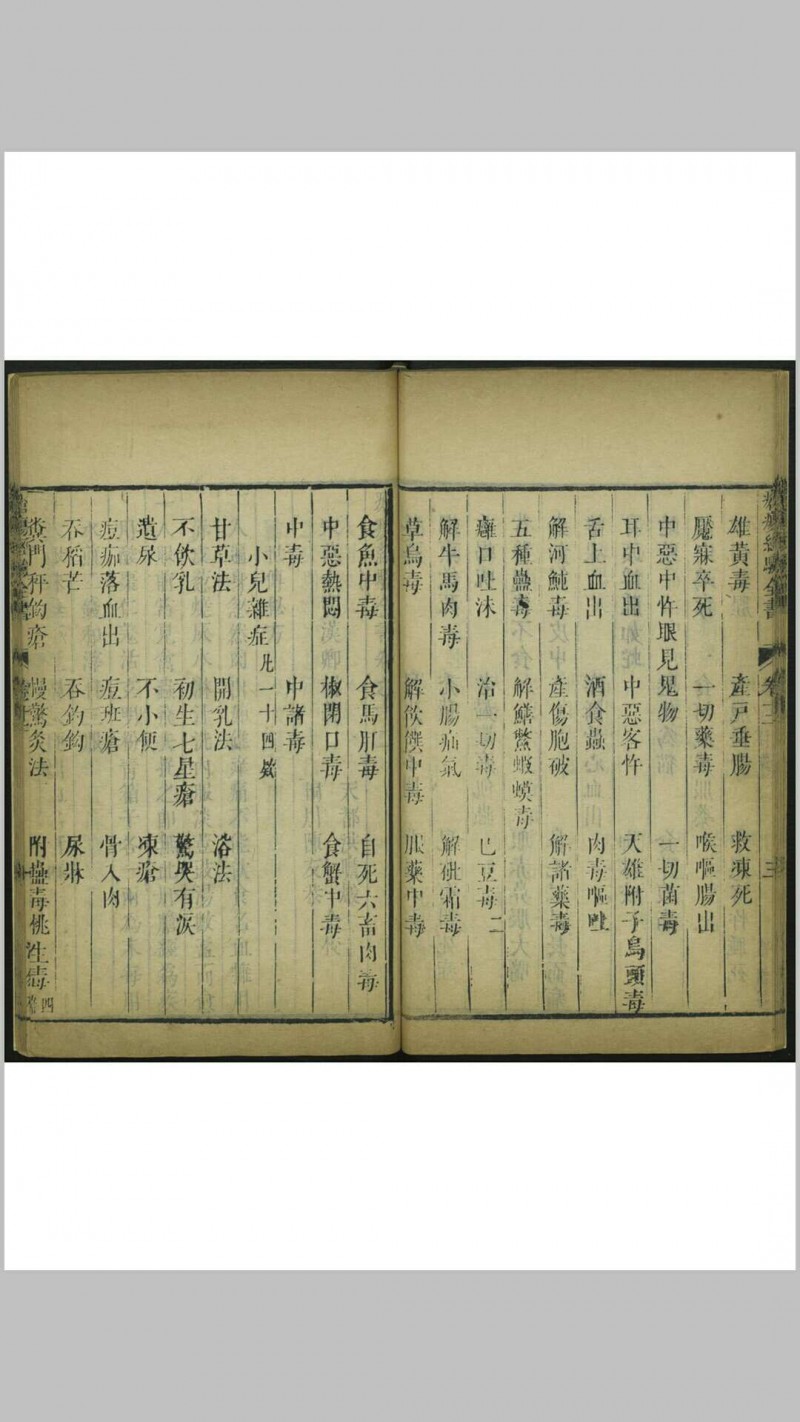 雄黃毒 產戸垂腸 救凍死
魘寐卒死 一切藥毒 喉嘔腸出
中惡中忤眼見鬼物 一切菌毒
耳中血出 中惡客忤 天雄附子烏頭毒
舌上血出 酒食蟲 肉毒嘔吐
解河魨毒 產傷胞破 解諸藥毒
五種蠱毒 解鱔鱉蝦蟆毒
癰口吐沫 治一切毒 巴豆毒二
解牛馬肉毒 小腸疝氣 解砒霜毒
草烏毒 解飲饌中毒 服藥中毒
食魚中毒 食馬肝毒 自死六畜肉毒
中惡熱悶 椒閉口毒 食蟹中毒
中毒 中諸毒
小兒雜症 凡一十四嵗
甘草法 開乳法 浴法
不飲乳 初生七星瘡 驚哭有淚
遺尿 不小便 凍瘡
痘痂落血出 痘班瘡 骨入肉
吞稻芒 吞釣鈎 尿淋
糞門秤鈎瘡 慢驚灸法 附蠱毒挑生毒 四